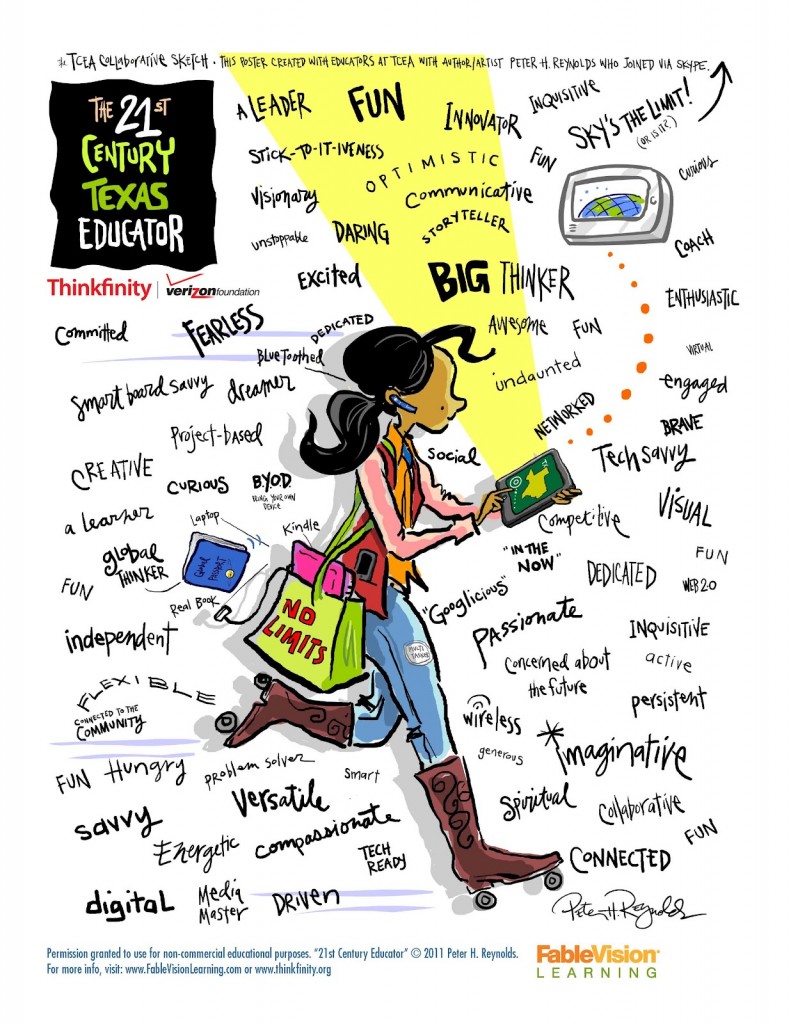 * TCEA COLLABORATIVE SKETCH • THIS POSTER CREATED WITH EDUCATORS AT TCEA WITH AUTHOR/ARTIST PETER H. REYNOLDS WHO JOINED VIA SKYPE.
THE 21ST
CENTURY
TEXAS
EDUCATOR
Thinkfinity | verizonfoundation
A LEADER
FUN
INNOVATOR
INQUISITIVE
SKY'S THE LIMIT!
(OR IS IT?)
STICK-TO-IT-IVENESS
OPTIMISTIC
FUN
CURIOUS
VISIONARY
COMMUNICATIVE
UNSTOPPABLE
DARING
STORYTELLER
COACH
EXCITED
BIG THINKER
ENTHUSIASTIC
COMMITTED
FEARLESS
DEDICATED
AWESOME
FUN
VIRTUAL
BLUETOOTHED
undaunted
engaged
smart board savvy
dreamer
NETWORKED
BRAVE
Project-based
SOCIAL
Tech savvy
CREATIVE
CURIOUS
B.Y.O.D.
BRING YOUR OWN
DEVICE
TX
VISUAL
a learner
Laptop
Kindle
Competitive
global
THINKER
Global
Passport
"IN THE
NOW"
FUN
FUN
Real Book
DEDICATED
WEB 2.0
NO
LIMITS
"Googlicious"
Passionate
independent
MULTI
TASKER
INQUISITIVE
Concerned about
the future
active
FLEXIBLE
persistent
CONNECTED TO THE
COMMUNITY
wireless
generous
*imaginative
FUN
Hungry
problem solver
Smart
Versatile
Spiritual
Collaborative
savvy
FUN
Energetic
compassionate
TECH
READY
CONNECTED
digital
Media
Master
DRIVEN
Peter H. Reynolds
Permission granted to use for non-commercial educational purposes. "21st Century Educator" © 2011 Peter H. Reynolds.
For more info, visit: www.FableVisionLearning.com or www.thinkfinity.org
FableVision®
LEARNING